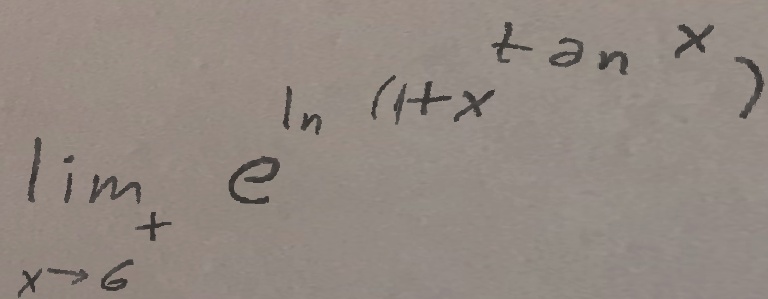 lim x→6⁺ e^(ln (1+x^(tan x)))